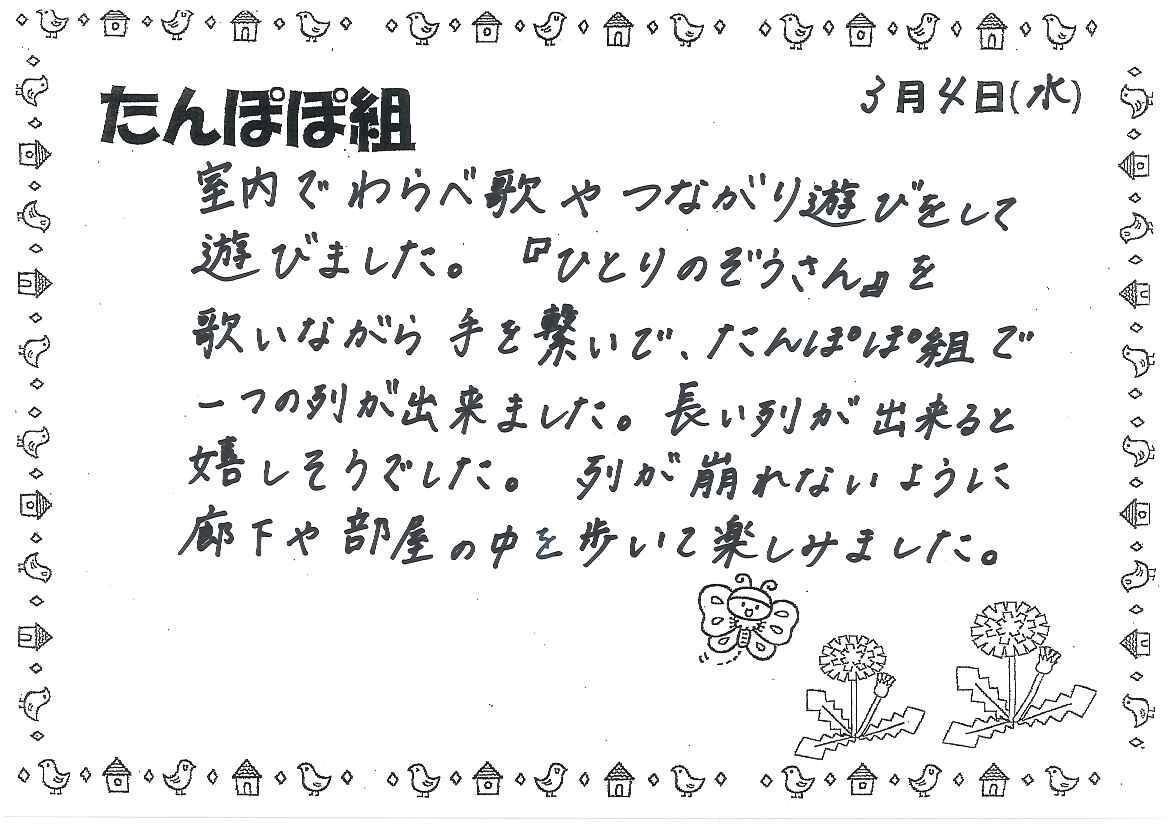 たんぽぽ組
3月4日(水)
室内でわらべ歌やつながり遊びをして
遊びました。『ひとりのぞうさん』を
歌いながら手を繋いで、たんぽぽ組で
一つの列が出来ました。長い列が出来ると
嬉しそうでした。列が崩れないように
廊下や部屋の中を歩いて楽しみました。